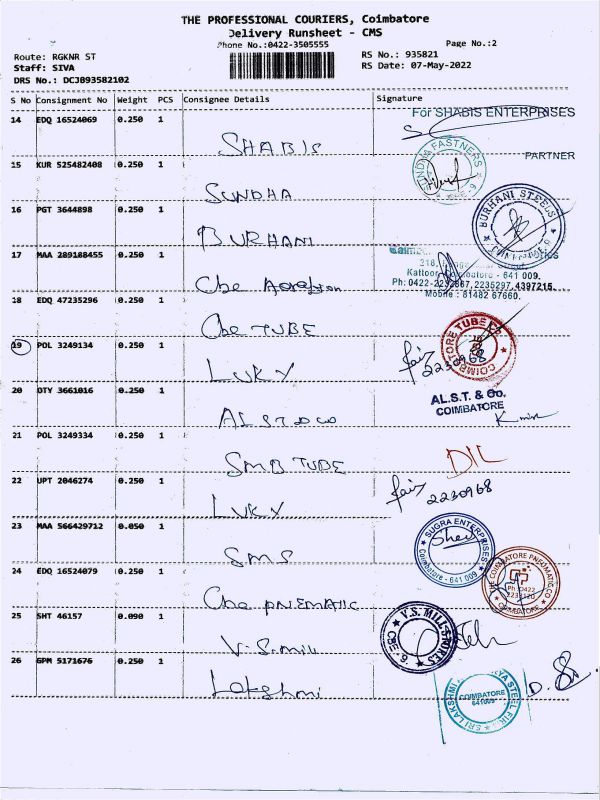 THE PROFESSIONAL COURIERS, Coimbatore
Delivery Runsheet - CMS
Phone No.:0422-3505555
Page No.:2
Route: RGKNR ST
RS No.: 935821
Staff: SIVA
RS Date: 07-May-2022
DRS No.: DCJ093582102
S No Consignment No Weight PCS Consignee Details Signature
14 EDQ 16524069 0.250 1
For SHABIS ENTERPRISES
SHABIS
PARTNER
15 KUR 525482408 0.250 1
FASTNERS
SUNDHA
16 PGT 3644898 0.250 1
BURHANI STEELS
BURHANI
17 MAA 289188455 0.250 1
Kattoor, Coimbatore - 641 009.
Ph: 0422-2235297, 4397215,
Mobile : 81482 67660.
Cbe
18 EDQ 47235296 0.250 1
Cbe TUBE
COIMBATORE TUBE
19 POL 3249134 0.250 1
faiz
2230968
LUKY
20 DTY 3661016 0.250 1
AL.S.T. & Co.
COIMBATORE
AL ST & CO
21 POL 3249334 0.250 1
SMB TUBE
DIL
22 UPT 2046274 0.250 1
faiz 2230968
LUKY
23 MAA 566429712 0.050 1
SUGRA ENTERPRISES
Coimbatore - 641 009
SMS
24 EDQ 16524079 0.250 1
THE COIMBATORE PNEUMATIC CO
Ph: 0422
COIMBATORE
Cbe PNEMATIC
25 SHT 46157 0.090 1
V.S. MILL STORES
CBE - 9.
V.S. mill
26 GPM 5171676 0.250 1
Lakshmi
SRI LAKSHMI
COIMBATORE
641009